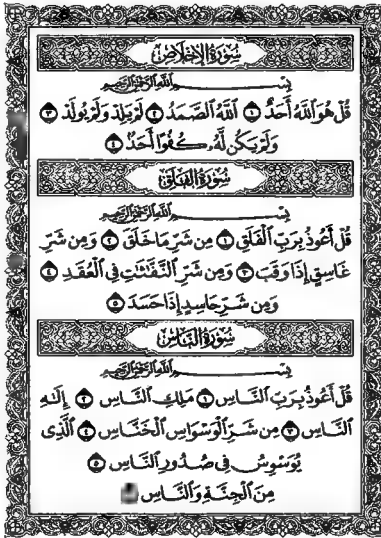 سُورَةُ الإِخْلَاصِ
بِسْمِ ٱللَّهِ ٱلرَّحْمَٰنِ ٱلرَّحِيمِ
قُلْ هُوَ ٱللَّهُ أَحَدٌ ١ ٱللَّهُ ٱلصَّمَدُ ٢ لَمْ يَلِدْ وَلَمْ يُولَدْ ٣
وَلَمْ يَكُن لَّهُۥ كُفُوًا أَحَدٌۢ ٤
سُورَةُ الفَلَقِ
بِسْمِ ٱللَّهِ ٱلرَّحْمَٰنِ ٱلرَّحِيمِ
قُلْ أَعُوذُ بِرَبِّ ٱلْفَلَقِ ١ مِن شَرِّ مَا خَلَقَ ٢ وَمِن شَرِّ
غَاسِقٍ إِذَا وَقَبَ ٣ وَمِن شَرِّ ٱلنَّفَّٰثَٰتِ فِى ٱلْعُقَدِ ٤
وَمِن شَرِّ حَاسِدٍ إِذَا حَسَدَ ٥
سُورَةُ النَّاسِ
بِسْمِ ٱللَّهِ ٱلرَّحْمَٰنِ ٱلرَّحِيمِ
قُلْ أَعُوذُ بِرَبِّ ٱلنَّاسِ ١ مَلِكِ ٱلنَّاسِ ٢ إِلَٰهِ
ٱلنَّاسِ ٣ مِن شَرِّ ٱلْوَسْوَاسِ ٱلْخَنَّاسِ ٤ ٱلَّذِى
يُوَسْوِسُ فِى صُدُورِ ٱلنَّاسِ ٥
مِنَ ٱلْجِنَّةِ وَٱلنَّاسِ